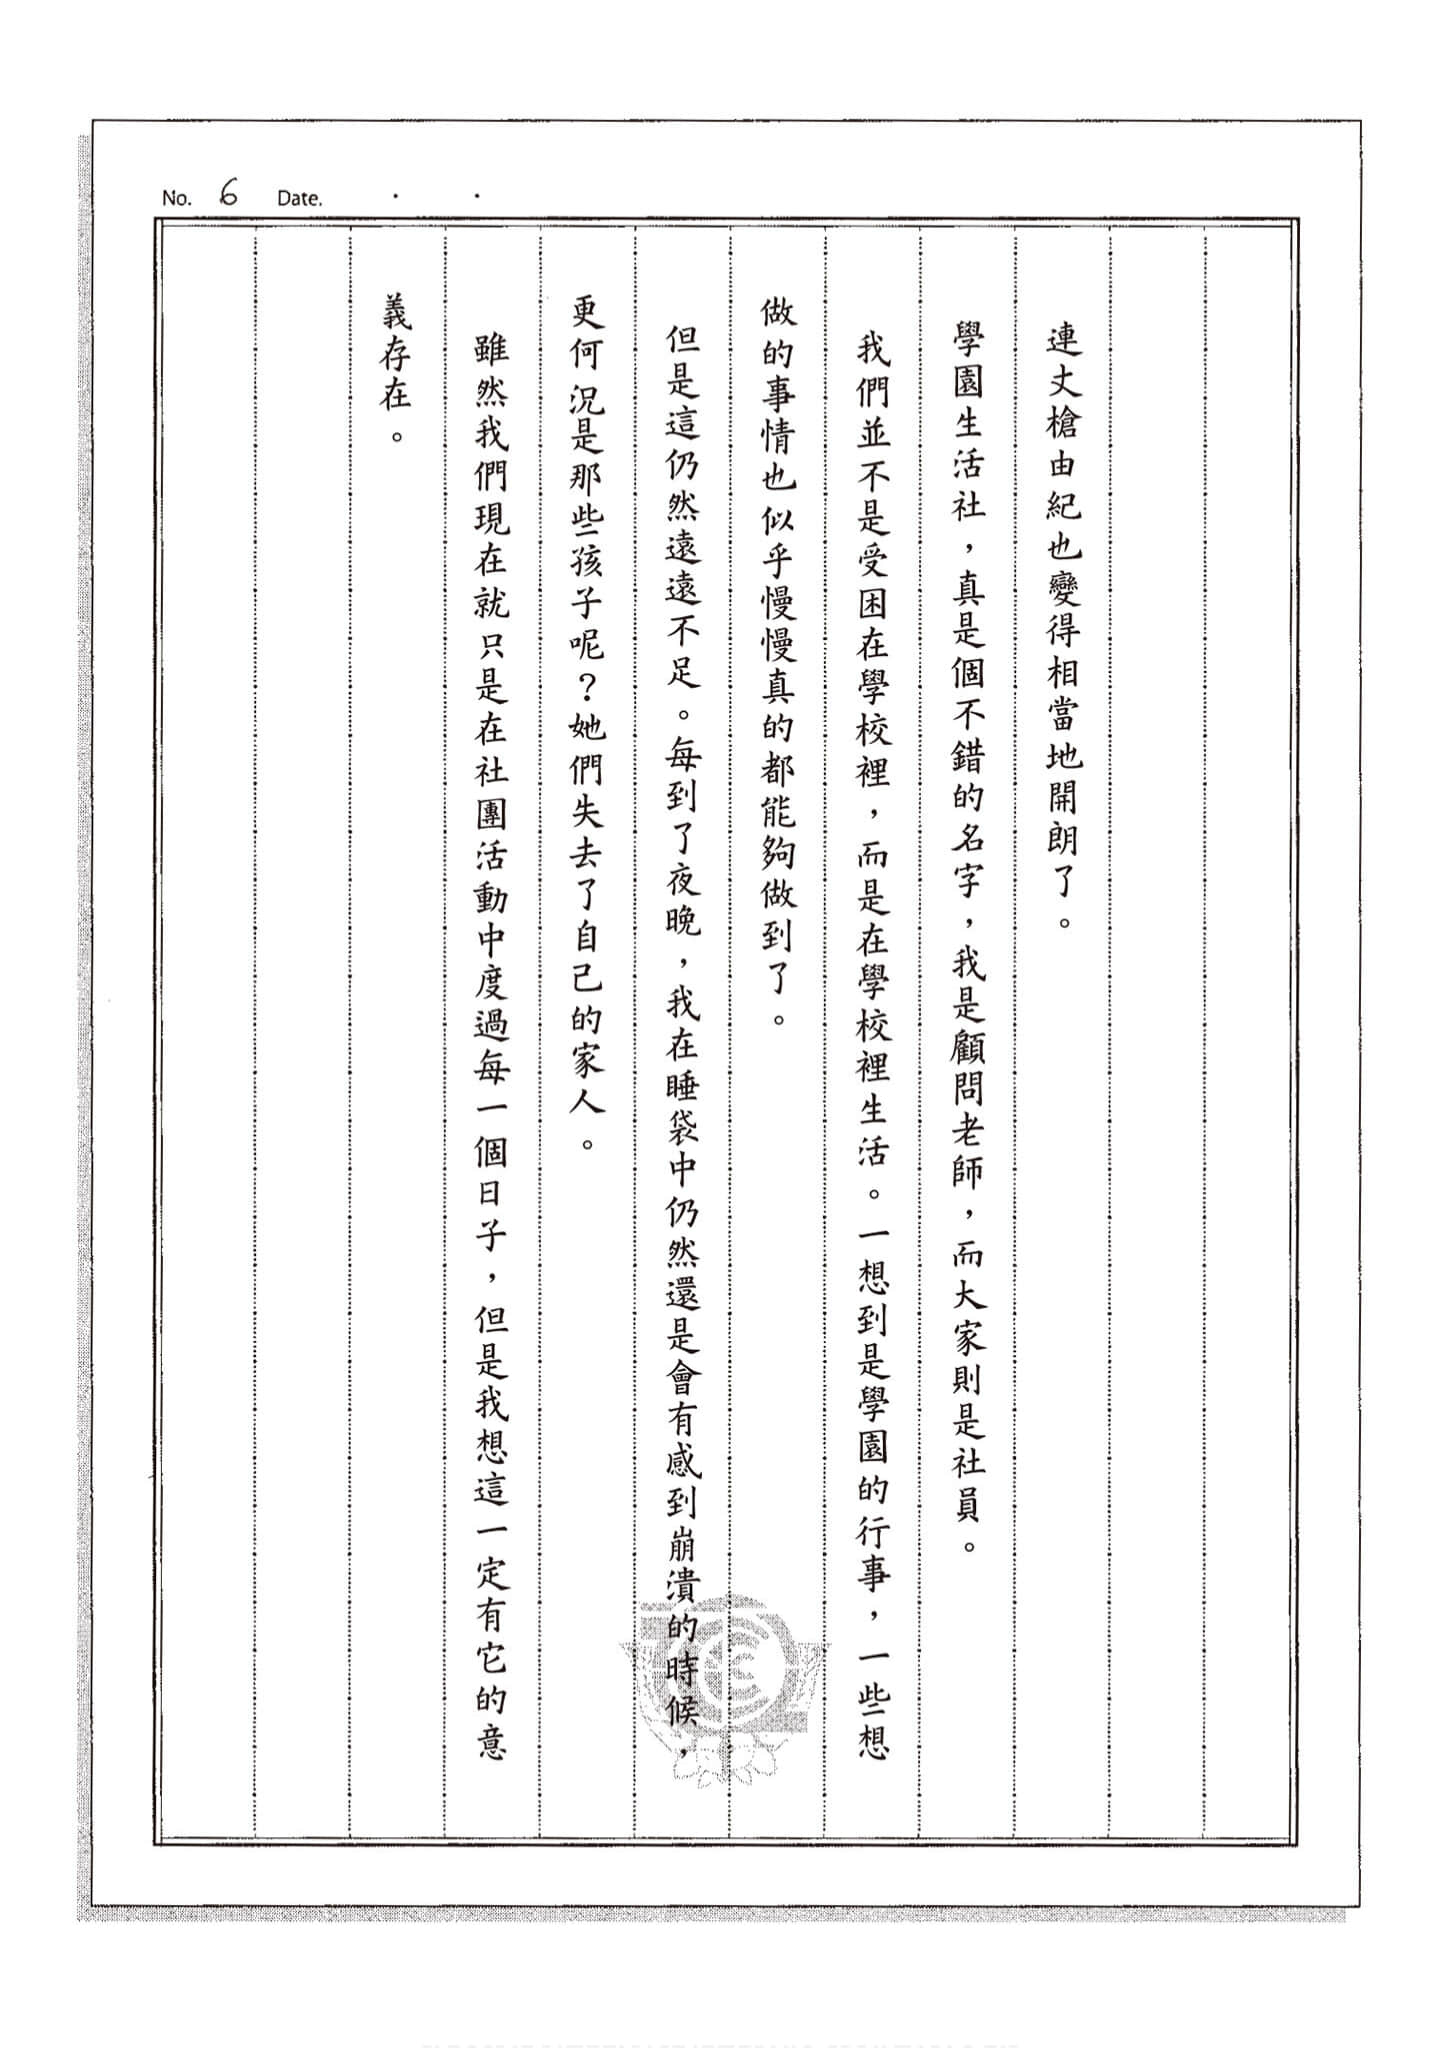 No. 6 Date. ・ ・
連丈槍由紀也變得相當地開朗了。
學園生活社，真是個不錯的名字，我是顧問老師，而大家則是社員。
我們並不是受困在學校裡，而是在學校裡生活。一想到是學園的行事，一些想
做的事情也似乎慢慢真的都能夠做到了。
但是這仍然遠遠不足。每到了夜晚，我在睡袋中仍然還是會有感到崩潰的時候，
更何況是那些孩子呢？她們失去了自己的家人。
雖然我們現在就只是在社團活動中度過每一個日子，但是我想這一定有它的意
義存在。